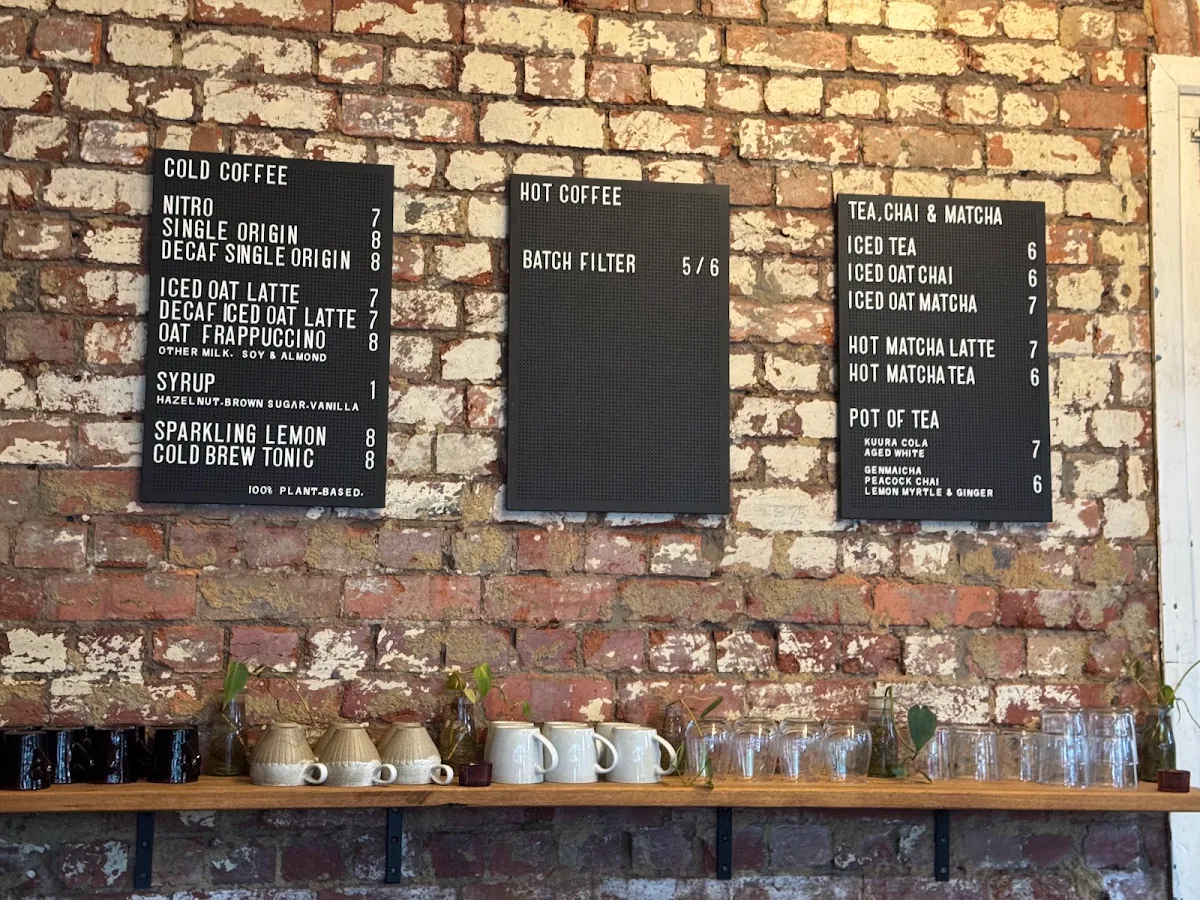 COLD COFFEE
NITRO 7
SINGLE ORIGIN 8
DECAF SINGLE ORIGIN 8
ICED OAT LATTE 7
DECAF ICED OAT LATTE 7
OAT FRAPPUCCINO 8
OTHER MILK. SOY & ALMOND
SYRUP 1
HAZELNUT-BROWN SUGAR-VANILLA
SPARKLING LEMON 8
COLD BREW TONIC 8
100% PLANT-BASED.
HOT COFFEE
BATCH FILTER 5/6
TEA, CHAI & MATCHA
ICED TEA 6
ICED OAT CHAI 6
ICED OAT MATCHA 7
HOT MATCHA LATTE 7
HOT MATCHA TEA 6
POT OF TEA
KUURA COLA
AGED WHITE 7
GENMAICHA
PEACOCK CHAI 6
LEMON MYRTLE & GINGER